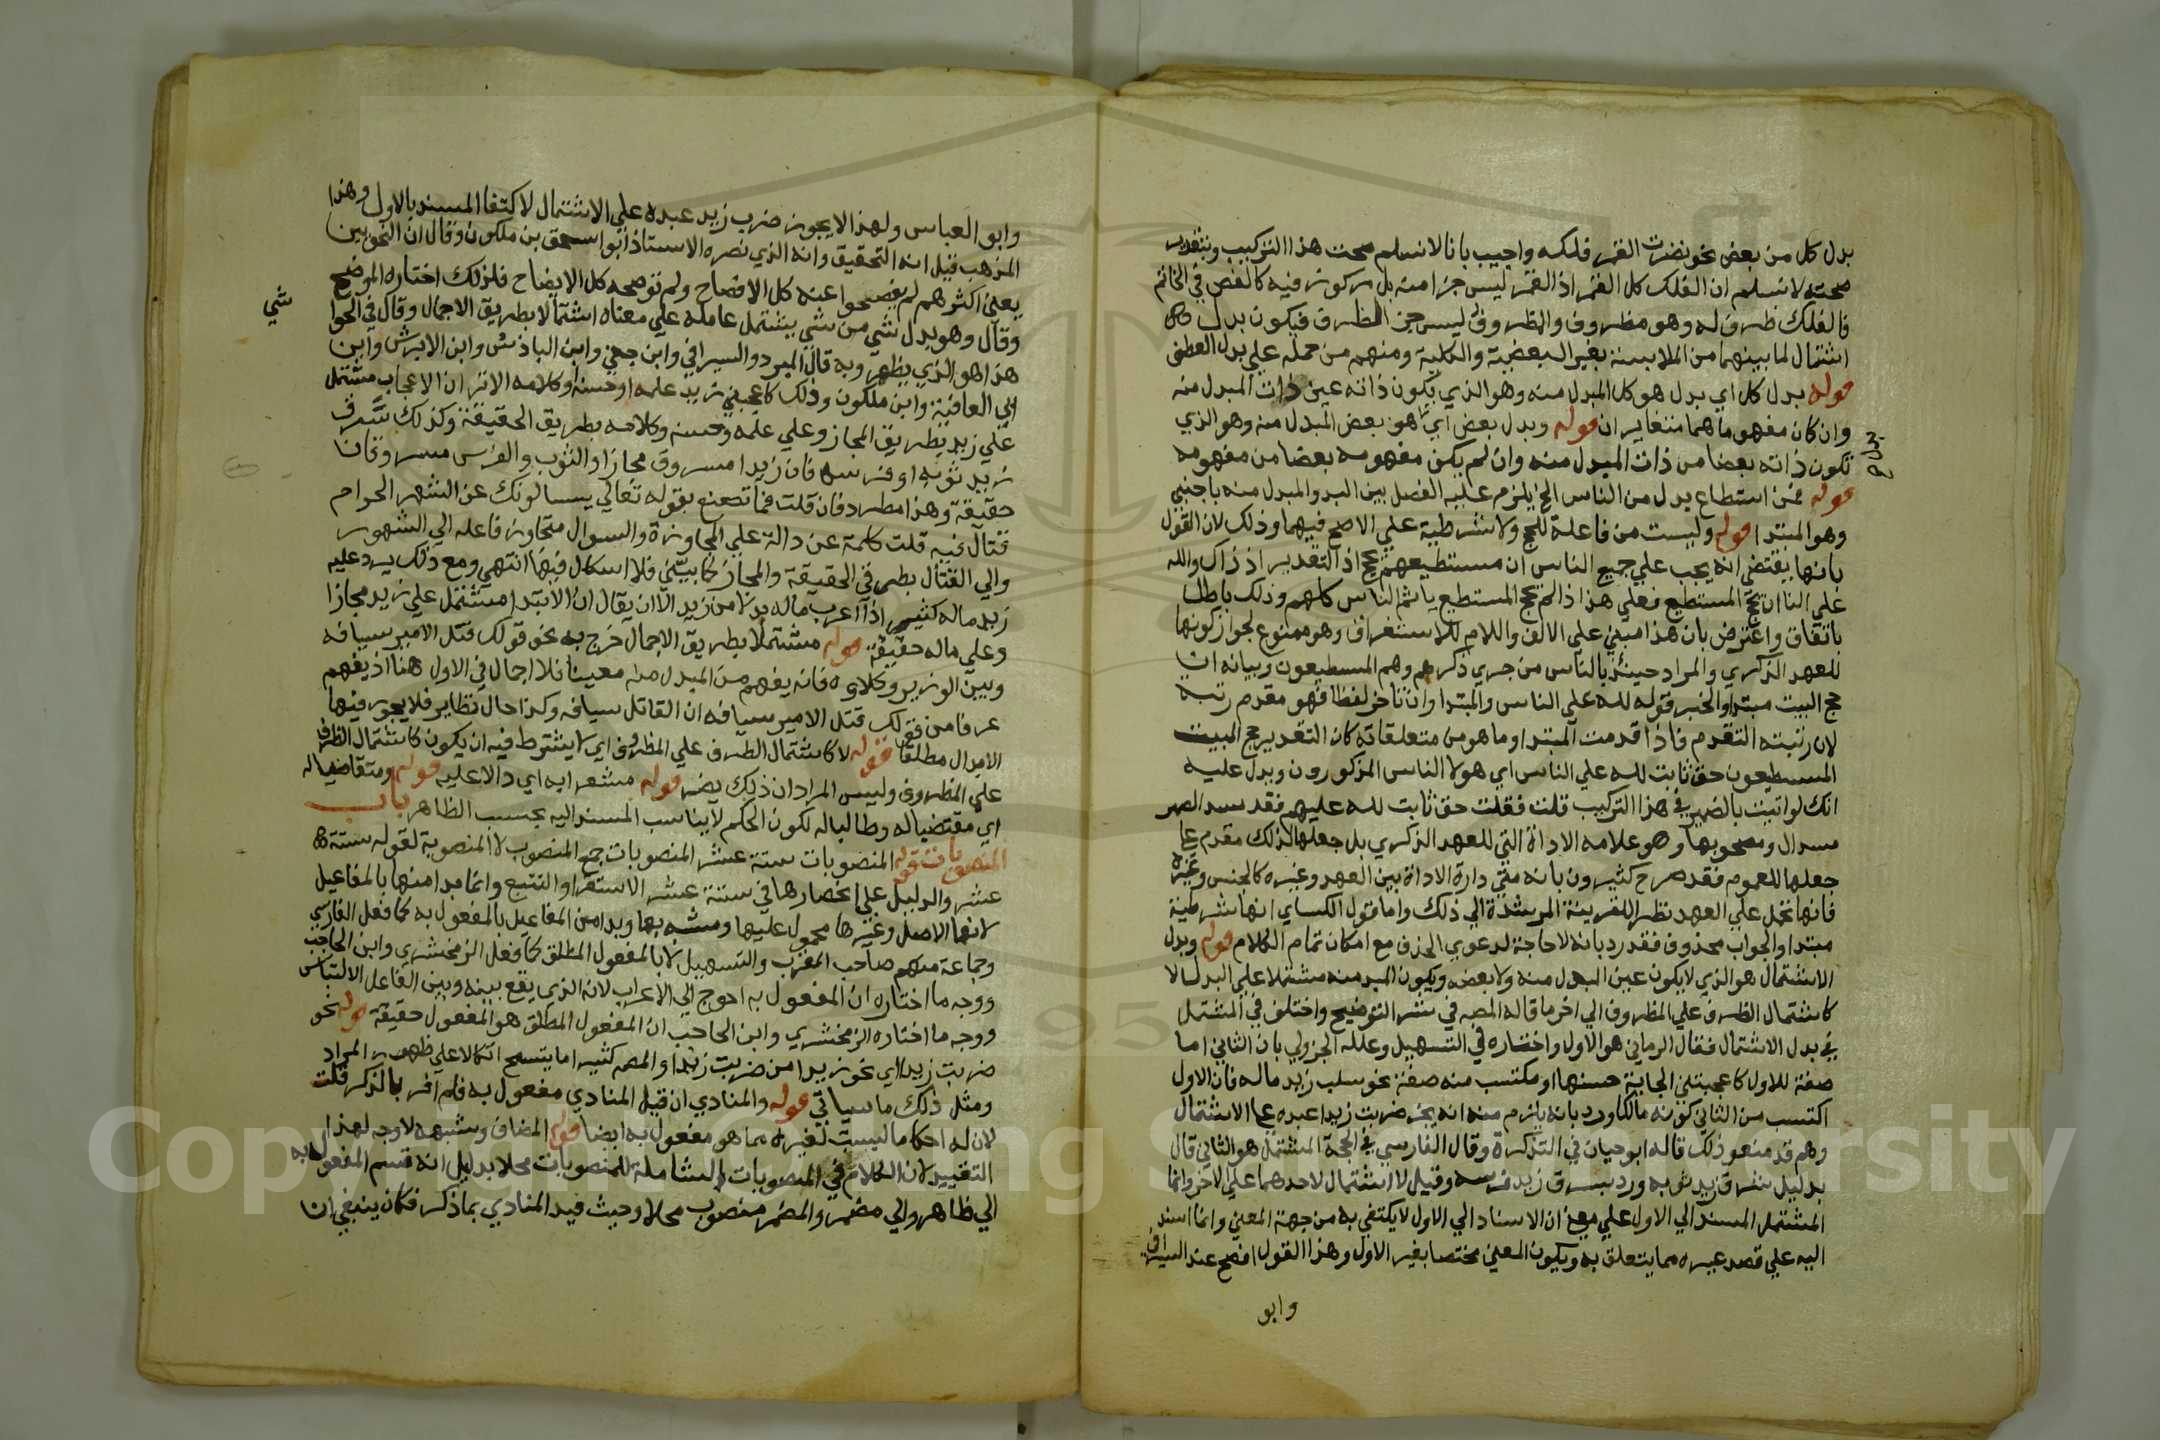 بدل كل من بعض نحو نضرت القمر فلكه واجيب بانا لا نسلم صحت هذا التركيب وبتقدير
صحته لا نسلم ان الفلك كل القمر اذ القمر ليس جزا منه بل مركوز فيه كالفص في الخاتم
فالفلك ظرف له وهو مظروف والمظروف ليس جز الظرف فيكون بدل
اشتمال لما بينهما من الملابسة بغير البعضية والكلية ومنهم من حمله علي بدل
قوله بدل كل اي بدل هو كل المبدل منه وهو الذي يكون ذاته عين ذات المبدل منه
وان كان مفهوما هما متغايران قوله وبدل بعض اي هو بعض المبدل منه وهو الذي
تكون ذاته بعضا من ذات المبدل منه وان لم يكن مفهومه بعضا من مفهومه
قوله فمن استطاع بدل من الناس الخ يلزم عليه الفصل بين البدل والمبدل منه باجنبي
وهو المبتدا قوله وليست من فاعلة للحج ولا شرطية علي الاصح فيهما وذلك لان القول
بانها يقتضي انه يجب علي جميع الناس ان مستطيعهم يحج اذ التقدير اذ ذاك والله
علي الناس ان يحج المستطيع فعلي هذا اذا لم يحج المستطيع ياثم الناس كلهم وذلك باطل
باتفاق واعترض بان هذا مبني علي الالف واللام للاستغراق وهو ممنوع لجواز كونها
للعهد الذكري والمراد حينئذ بالناس من جري ذكرهم وهم المستطيعون وبيانه ان
حج البيت مبتدا والخبر قوله لله علي الناس والمبتدا وان تاخر لفظا فهو مقدم رتبة
لان رتبته التقدم فاذا قدمت المبتدا وما هو من متعلقاته كان التقدير حج البيت
المستطيعون حق ثابت لله علي الناس اي هولا الناس المذكورون ويدل عليه
انك لو اتيت بالضمير في هذا التركيب قلت فقلت حق ثابت لله عليهم فقد سد الضمير
مسد ال ومصحوبها وهو علامه الاداة التي للعهد الذكري بل جعلها لذلك مقدم علي
جعلها للعموم فقد صرح كثيرون بانه متي دارة الاداة بين العهد وغيره كالجنس وغيره
فانها تحمل علي العهد نظرا للقرينة المرشدة الي ذلك واما قول الكساي انها شرطية
مبتدا والجواب محذوف فقد رد بانه لا حاجة لدعوي الحذف مع امكان تمام الكلام قوله وبدل
الاشتمال هو الذي لا يكون عين المبدل منه ولا بعضه ويكون المبدل منه مشتملا علي البدل لا
كاشتمال الظرف علي المظروف الي اخر ما قاله المصه في شرح التوضيح واختلف في المشتمل
في بدل الاشتمال فقال الرماني هو الاول واختاره في التسهيل وعلله الجزولي بان الثاني اما
صفة للاول كاعجبتني الجارية حسنها او مكتسب منه صفة نحو سلب زيد ماله فان الاول
اكتسب من الثاني كونه مالكا ورد بانه يلزم منه انه يجز ضربت زيدا عبده علي الاشتمال
وهم قد منعو ذلك قاله ابو حيان في التذكرة وقال الفارسي في الحجة المشتمل هو الثاني قال
بدليل سرق زيد ثوبه ورد بسرق زيد فرسه وقيل لا اشتمال لاحدهما علي الاخر وانما
المشتمل المسند الي الاول علي معني ان الاسناد الي الاول لا يكتفي به من جهة المعني وانما اسند
اليه علي قصد غيره مما يتعلق به ويكون المعني مختصا بغير الاول وهذا القول افصح عند السيرافي
وابو
وابو العباس ولهذا لا يجوز ضرب زيد عبده علي الاشتمال لاكتفا المسند بالاول وهذا
المذهب قيل انه التحقيق وانه الذي نصره الاستاذ ابو اسحق بن ملكون وقال ان النحويين
يعني اكثرهم لم يفصحوا عنه كل الافصاح ولم توضحه كل الايضاح فلذلك اختاره الموضح
وقال وهو بدل شي من شي يشتمل عامله علي معناه اشتمالا بطريق الاجمال وقال في الحوا
شي
هذا هو الذي يظهر وبه قال المبرد والسيرافي وابن جني وابن الباذش وابن الابرش وابن
ابي العافية وابن ملكون وذلك كاعجبني زيد علمه او حسنه او كلامه الاتر ان الاعجاب مشتمل
علي زيد بطريق المجاز وعلي علمه وحسنه وكلامه بطريق الحقيقة وكذلك سرق
زيد ثوبه او فرسه فان زيدا مسروق مجازا والثوب والفرس مسروقان
حقيقة وهذا مطرد فان قلت فما تصنع بقوله تعالي يسالونك عن الشهر الحرام
قتال فيه قلت كلمة عن دالة علي المجاوزة والسوال متجاوز فاعله الي الشهور
والي القتال بطر في الحقيقة والمجاز كما بينتني فلا اشكال فيها انتهي ومع ذلك يرد عليه
زيد ماله كثير اذا اعرب ماله بدلا من زيد الا ان يقال ان الابتدا مشتمل علي زيد مجازا
وعلي ماله حقيقة قوله مشتملا بطريق الاجمال خرج به نحو قولك قتل الامير سيافه
وبين الوزير وكلاوه فانه يفهم من المبدل منه معينا فلا اجمال في الاول هنا اذ يفهم
عرفا من قولك قتل الامير سيافه ان القاتل سيافه وكذا حال نظايره فلا يجوز فيها
الابدال مطلقا قوله لا كاشتمال الظرف علي المظروف اي لا يشترط فيه ان يكون كاشتمال الظرف
علي المظروف وليس المراد ان ذلك يضر قوله مشعرا به اي دالا عليه قوله ومتقاضيا له
اي مقتضيا له وطالبا له لكون الحكم لا يناسب المسند اليه بحسب الظاهر باب
المنصوبات قوله المنصوبات ستة عشر المنصوبات جمع المنصوب لا المنصوبة لقوله ستة
عشر والدليل علي انحصارها في ستة عشر الاستقرا والتتبع وانما بدا منها بالمفاعيل
لانها الاصل وغيرها محمول عليها ومشبه بها وبدا من المفاعيل بالمفعول به كما فعل الفارسي
وجماعة منهم صاحب المقرب والتسهيل لا بالمفعول المطلق كما فعل الزمخشري وابن الحاجب
ووجه ما اختاره ان المفعول به احوج الي الاعراب لانه الذي يقع بينه وبين الفاعل الالتباس
ووجه ما اختاره الزمخشري وابن الحاجب ان المفعول المطلق هو المفعول حقيقة قوله نحو
ضربت زيدا اي نحو زيدا من ضربت زيدا والمصه كثيرا ما يتسمح اتكالا علي ظهور المراد
ومثل ذلك ما سياتي قوله والمنادي ان قيل المنادي مفعول به فلم افرد بالذكر قلت
لان له احكاما ليست لغيره مما هو مفعول به ايضا قوله المضاف وشبهه لا وجه لهذا
التقييد لان الكلام في المنصوبات الشاملة للمنصوبات محلا بدليل انه قسم المفعول به
الي ظاهر والي مضمر والمضمر منصوب محلا وحيث قيد المنادي بما ذكر فكان ينبغي ان